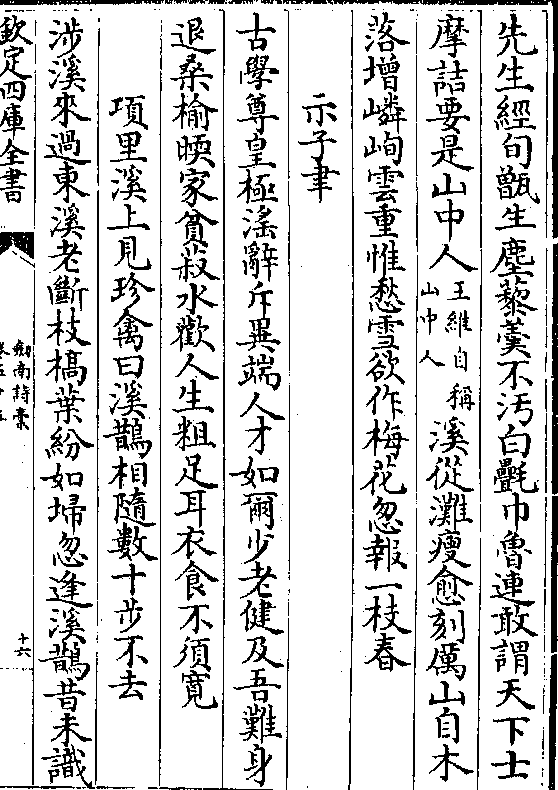 先生經旬甑生塵藜羹不汚白㲲巾魯連敢謂天下士
摩詰要是山中人王維自稱山中人溪從灘瘦愈刻厲山自木
落增嶙峋雲重惟愁雪欲作梅花忽報一枝春
示子聿
古學尊皇極滛辭斥異端人才如爾少老健及吾難身
退桑榆暎家貧菽水歡人生粗足耳衣食不須寛
項里溪上見珍禽曰溪鵲相隨數十步不去
涉溪來過東溪老斷枝槁葉紛如埽忽逢溪鵲昔未識
欽定四庫全書
劍南詩稾
十六